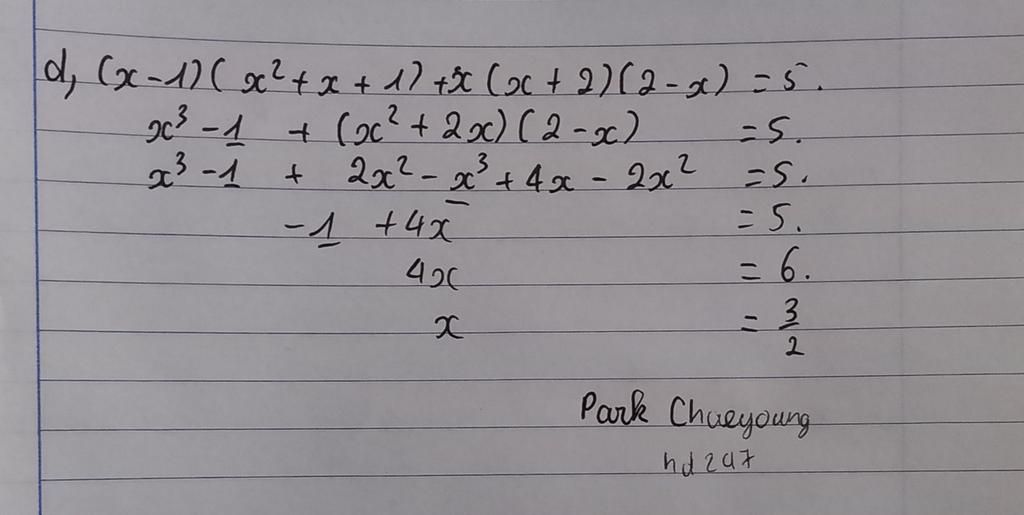 d, (x-1)(x²+x+1)+x(x+2)(2-x) = 5.
x³-1 + (x²+2x)(2-x) = 5.
x³-1 + 2x²-x³+4x-2x² = 5.
-1 +4x = 5.
4x = 6.
x = 3/2
Park Chaeyoung
hd247